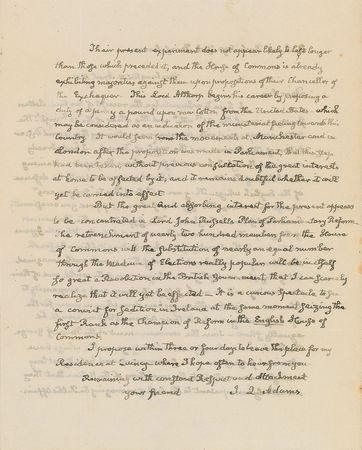 Their present experiment does not appear likely to last longer
than those which preceded it, and the House of Commons is already
exhibiting majorities against them upon propositions of their Chancellor of
the Exchequer. This Lord Althorp begins his career by proposing a
duty of a penny a pound upon raw Cotton from the United States which
may be considered as an indication of the ministerial feeling towards this
Country. It would seem from the movements at Manchester and in
London after the proposition was made in Parliament, that this step
had been taken without previous consultation of the great interests
at home to be affected by it, and it remains doubtful whether it will
yet be carried into effect.
But the great and absorbing interest for the present appears
to be concentrated in Lord John Russell's Plan of Parliamentary Reform.
The retrenchment of nearly two hundred members from the House
of Commons with the substitution of nearly an equal number
through the Medium of Elections really popular will be in itself
so great a Revolution in the British Government that I can scarcely
realize that it will yet be effected — It is a curious Spectacle to see
a convict for sedition in Ireland at the same moment seizing the
first Rank as the Champion of Reform in the English House of
Commons.
I propose within three or four days to leave this place for my
Residence at Quincy where I hope often to hear from you
Remaining with constant Respect and Attachment
your friend J. Q. Adams.